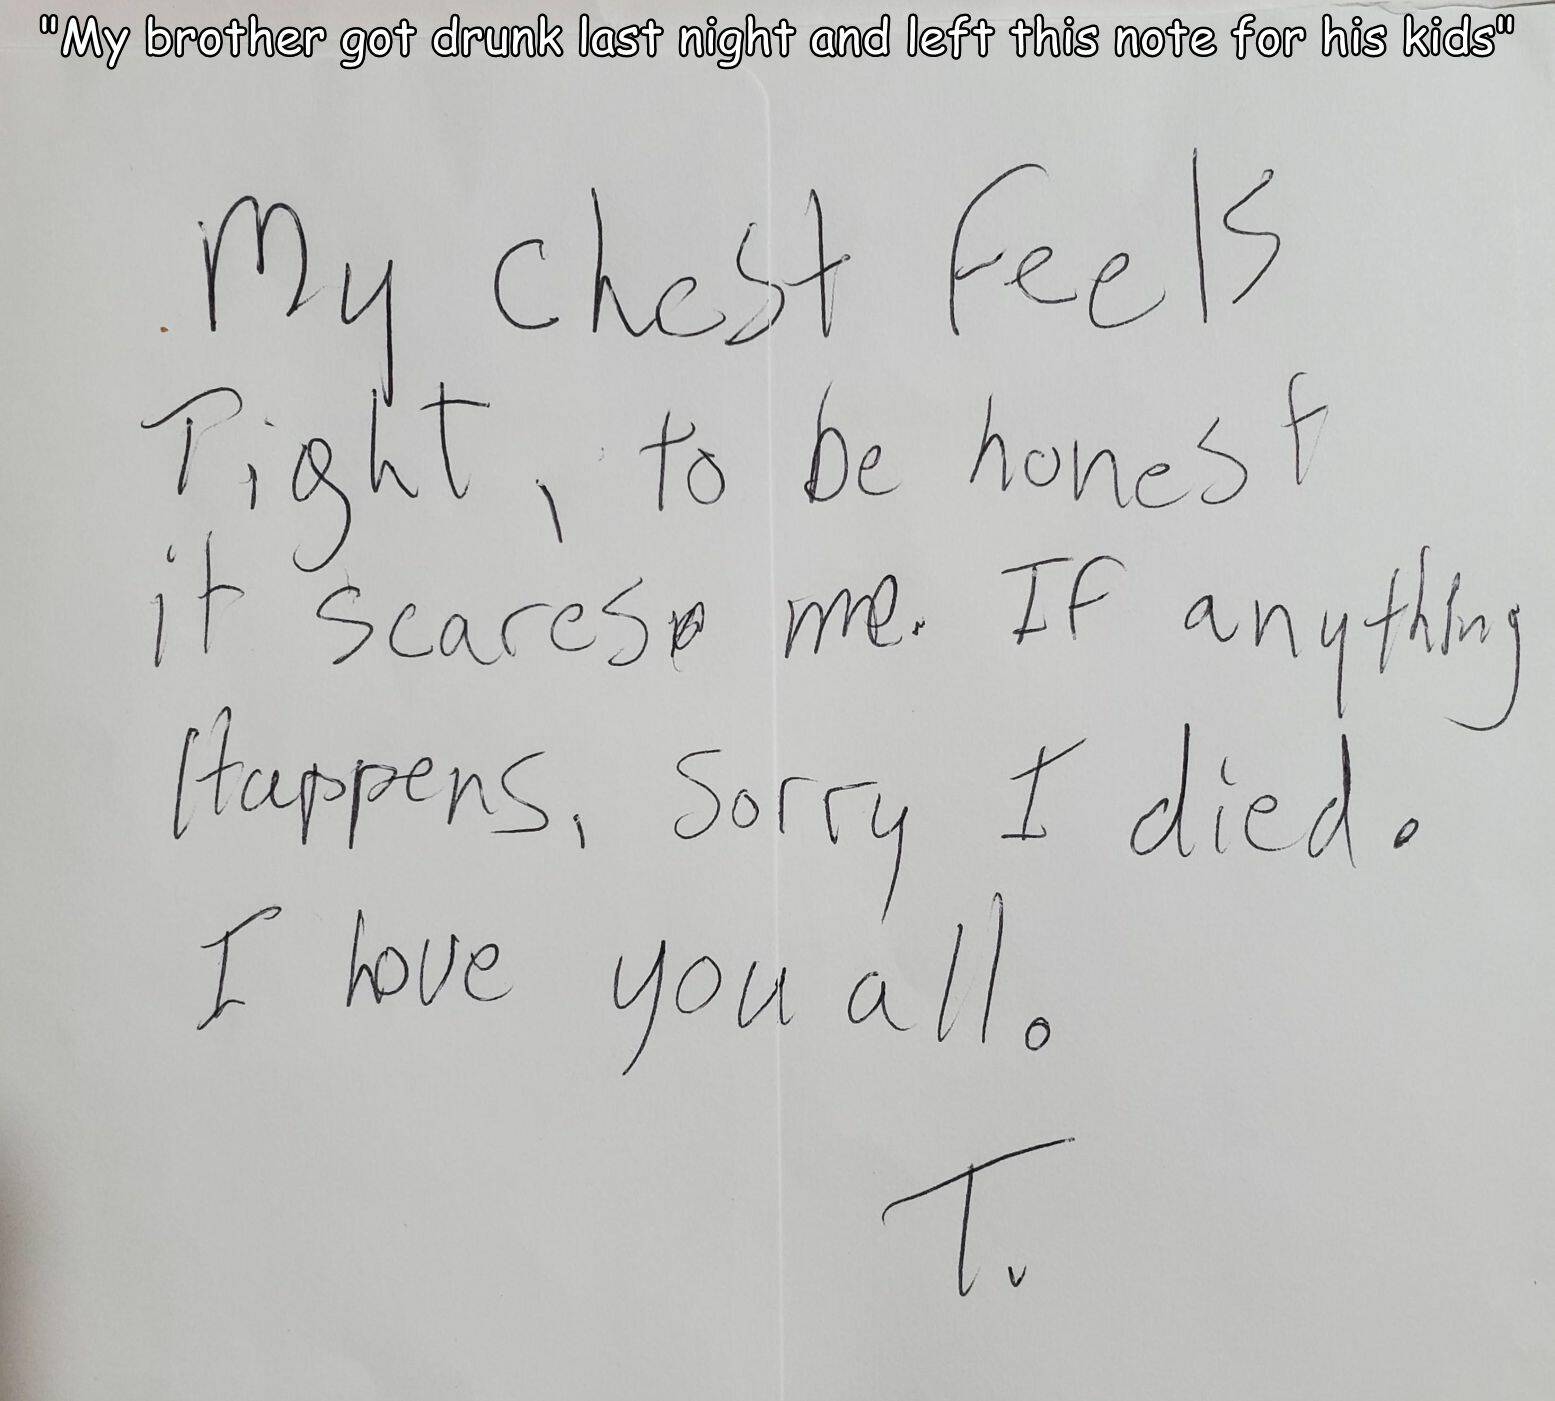 "My brother got drunk last night and left this note for his kids"
My chest feels
Tight, to be honest
it scares me. If anything
Happens, sorry I died.
I love you all.
T.